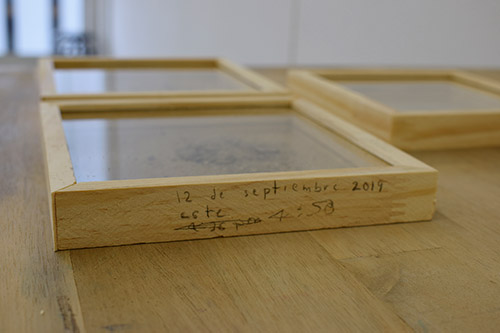 12 de septiembre 2019
este
4:58